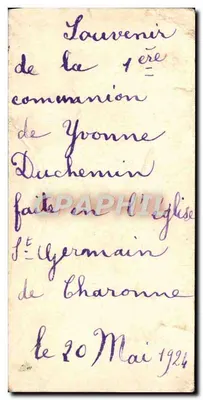 Souvenir
de la 1ère
communion
de Yvonne
Duchemin
faite en l'église
St Germain
de Charonne
le 20 Mai 1924